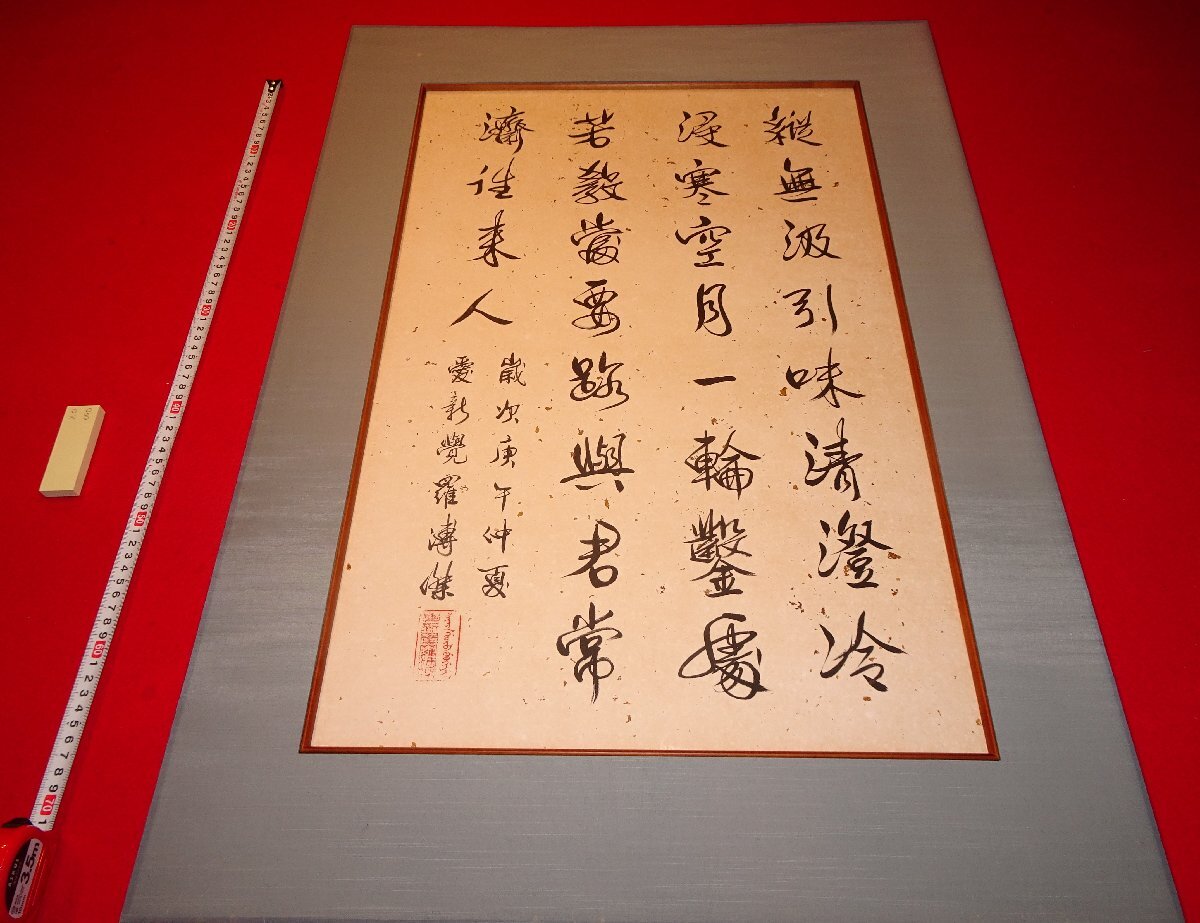 縱無汲引味清澄冷
浸寒空月一輪鑿處
若教當要路與君常
濟往來人
歲次庚午仲夏
愛新覺羅溥傑
3.5m